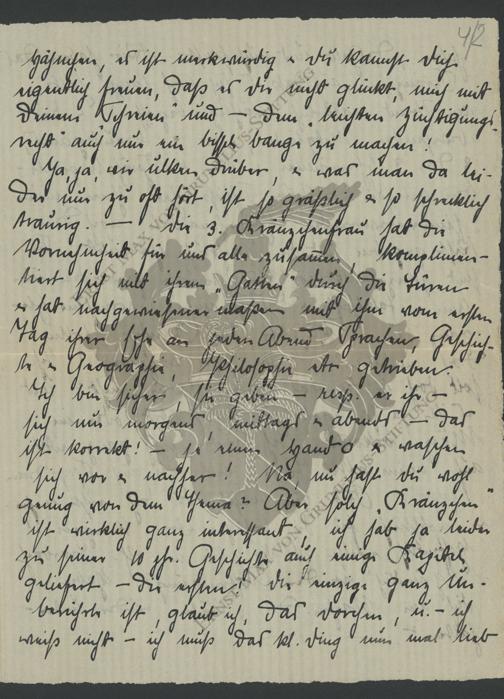 4/2
Hähnchen, es ist merkwürdig u du kannst dich
eigentlich freuen, daß es dir nicht glückt, mich mit
deinem "Schreien" und – dem "leichten Züchtigungs
recht" auch nur ein bissel bange zu machen!
Ja, ja, wir ulken drüber, u was man da lei-
der nur zu oft hört, ist so gräßlich u so schrecklich
traurig. — Die 3. Kränzchenfrau hat die
Vornehmheit für uns alle zusammen, komplimen-
tiert sich mit ihrem "Gatten" durch die Türen
u hat nachgewiesenermaßen mit ihm vom ersten
Tag ihrer Ehe an jeden Abend Sprachen, Geschich-
te u Geographie, Philosophie etc getrieben.
Ich bin sicher, sie geben – resp. er ihr –
sich nur morgens, mittags u abends – das
ist korrekt! – je einen Hand u waschen
sich vor u nachher! Na nu hast du wohl
genug von dem Thema? Aber solch "Kränzchen"
ist wirklich ganz interessant, ich hab ja leider
zu seiner 10 Geschichte auch einige Kapitel
geliefert – die ersten! Die einzige ganz Un-
berührte ist, glaub ich, das Dorchen, u. – ich
weiß nicht – ich muß das kl. Ding nun mal lieb